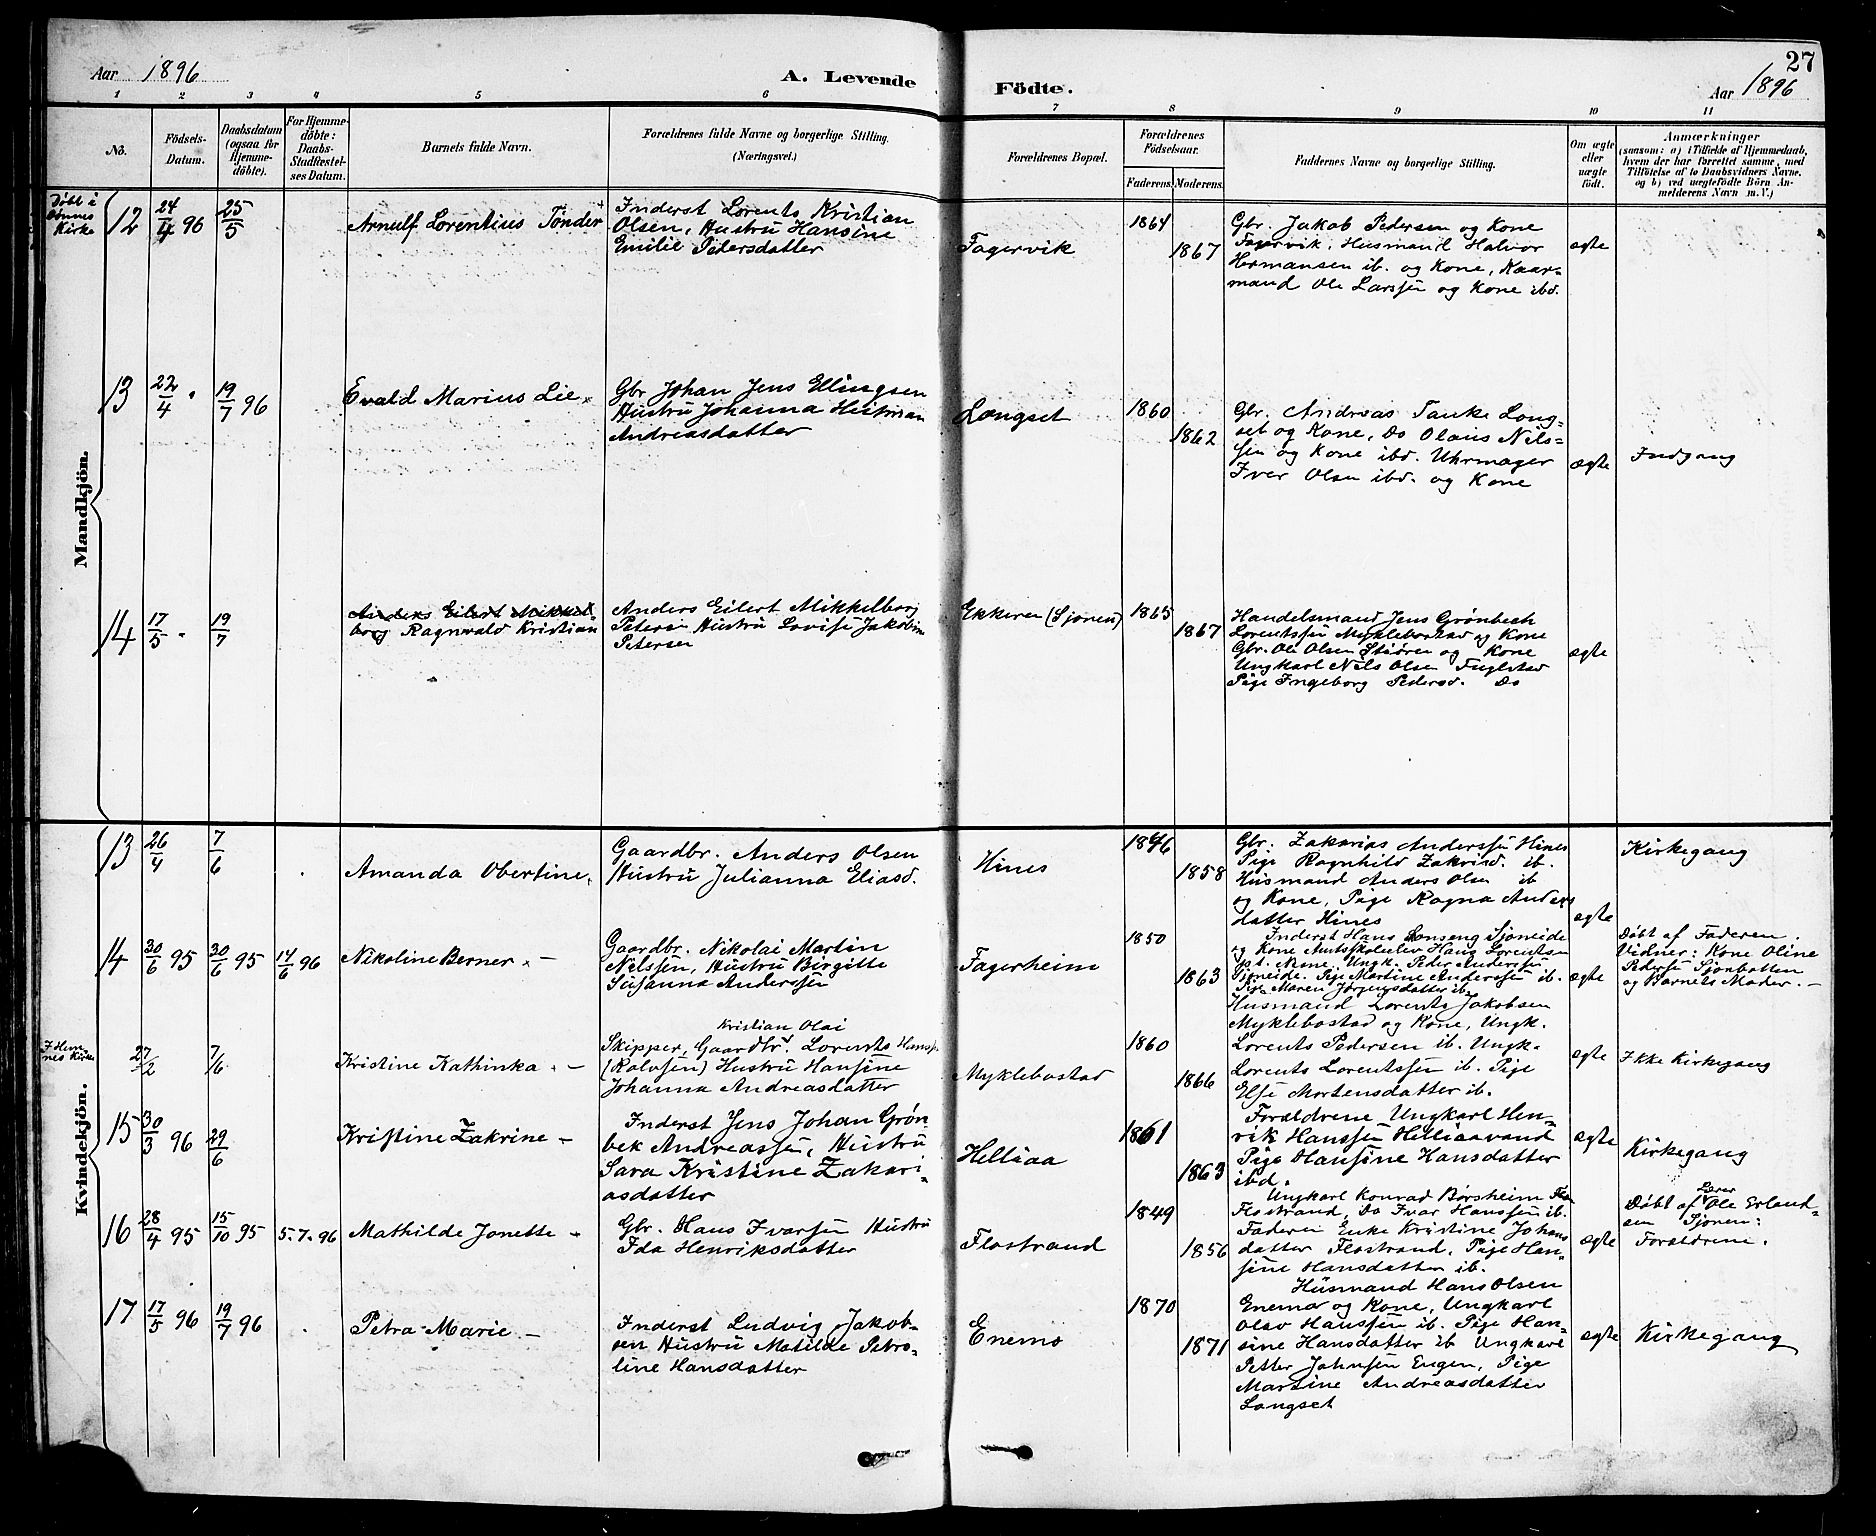 27
Aar 1896
A. Levende Födte.
Aar 1896
1 2 3 4 5 6 7 8 9 10 11
No.
Födsels-
Datum.
Daabsdatum
(ogsaa for
Hjemme-
döbte).
For Hjemme-
döbte:
Daabs-
Stadfæstel-
ses Datum.
Barnets fulde Navn.
Forældrenes fulde Navne og borgerlige Stilling.
(Næringsvei.)
Forældrenes Bopæl.
Forældrenes
Födselsaar.
Faderens. Moderens.
Faddernes Navne og borgerlige Stilling.
Om ægte
eller
uægte
födt.
Anmærkninger
(saasom: a) i Tilfælde af Hjemmedaab,
hvem der har forrettet samme, med
Tilföielse af to Daabsvidners Navne.
og b) ved uægtefödte Börn An-
melderens Navn m. V.)
Mandkjön.
Døbt i
Dønnes
Kirke
12 24/4 96 25/5
Arnulf Lorentius Tønder
Inderst Lorents Kristian
Olsen, Hustru Hansine
Emilie Pedersdatter
Fagervik
1864
1867
Gbr. Jakob Pedersen og Kone
Fagervik, Husmand Halvor
Hermansen ib. og Kone, Kaar-
mand Ole Larssen og Kone ibd.
ægte
13 22/4 " 19/7 96
Evald Marius Lie
Gbr Johan Jens Ellingsen
Hustru Johanna
Andreasdatter
Længset
1860
1862
Gbr. Andreas Tanke Long-
set og Kone, Do Olaus Nils-
sen og Kone ibd. Uhrmager
Iver Olsen ibd. og Kone
ægte
Indgang
14 17/5 " 19/7
Anders Eilert Mikkel
borg Ragnvald Kristian
Anders Eilert Mikkelborg
Petersen Hustru Lovise Jakobine
Petersen
Ekkeren (Sjonen)
1865
1867
Handelsmand Jens Grønbech
Lorentssen Myklebostad og Kone
Gbr. Ole Olsen Stiøren og Kone
Ungkarl Nils Olsen Fuglstad
Pige Ingeborg Pedersd. Do
ægte
Kvindekjön.
13 26/4 7/6
Amanda Obertine
Gaardbr. Anders Olsen
Hustru Julianna Eliasd.
Hines
1846
1858
Gbr. Zakarias Anderssen Hines
Pige Ragnhild Zakrisd. ib.
Husmand Anders Olsen ib
og Kone, Pige Ragna Anders
datter Hines
ægte
Kirkegang
14 30/6 95 30/6 95 14/6 96
Nikoline Berner —
Gaardbr. Nikolai Martin
Nilssen, Hustru Birgitte
Susanna Anderssen
Fagerheim
1850
1863
Inderst Hans Lonseng Sjoneide
og Kone Amtsskoleelev Hans Lorentsen
pt. Nesne, Ungk. Peder Anderssen
Sjoneide. Pige Martine Anderssen ib.
Pige Maren Jørgensdatter ib.
ægte
Døbt af Faderen.
Vidner: Kone Oline
Pederse Sjonbotten
og Barnets Moder. —
I Hem-
nes Kirke
27/2 7/6
Kristine Kathinka —
Kristian Olai
Skipper, Gaardbr. Lorents Hanss
(Rolvsen) Hustru Hansine
Johanna Andreasdatter
Myklebostad
1860
1866
Husmand Lorents Jakobsen
Myklebostad og Kone, Ungk.
Lorents Pedersen ib. Ungk-
Lorents Lorentssen ib. Pige
Else Mortensdatter ib.
ægte
Ikke Kirkegang
15 30/3 96 29/6
Kristine Zakrine —
Inderst Jens Johan Grøn
bek Andreassen, Hustru
Sara Kristine Zakari-
asdatter
Helliaa
1861
1863
Forældrene Ungkarl Hen-
rik Hanssen Helliaavand
Pige Hansine Hansdatter
ibd.
ægte
Kirkegang
16 28/4 95 15/10 95 5-7-96
Mathilde Jonette —
Gbr. Hans Ivarsen Hustru
Ida Henriksdatter
Flostrand
1849
1856
Ungkarl Konrad Børsheim
Flostrand, Do Ivar Hanssen ib.
Faderen Enke Kristine Johans
datter Flostrand, Pige Han-
sine Hansdatter ib.
ægte
Lærer
Døbt af Ole Erland-
sen Sjonen:
Forældrene.
17 17/5 96 19/7 96
Petra Marie —
Inderst Ludvig Jakob-
sen Hustru Matilde Petro-
line Hansdatter
Enemo
1870
1871
Husmand Hans Olsen
Enemo og Kone, Ungkarl
Olav Hanssen ib. Pige Han-
sine Hansdatter ib Ungkarl
Petter Johnsen Engen, Pige
Martine Andreasdatter
Langset
ægte
Kirkegang